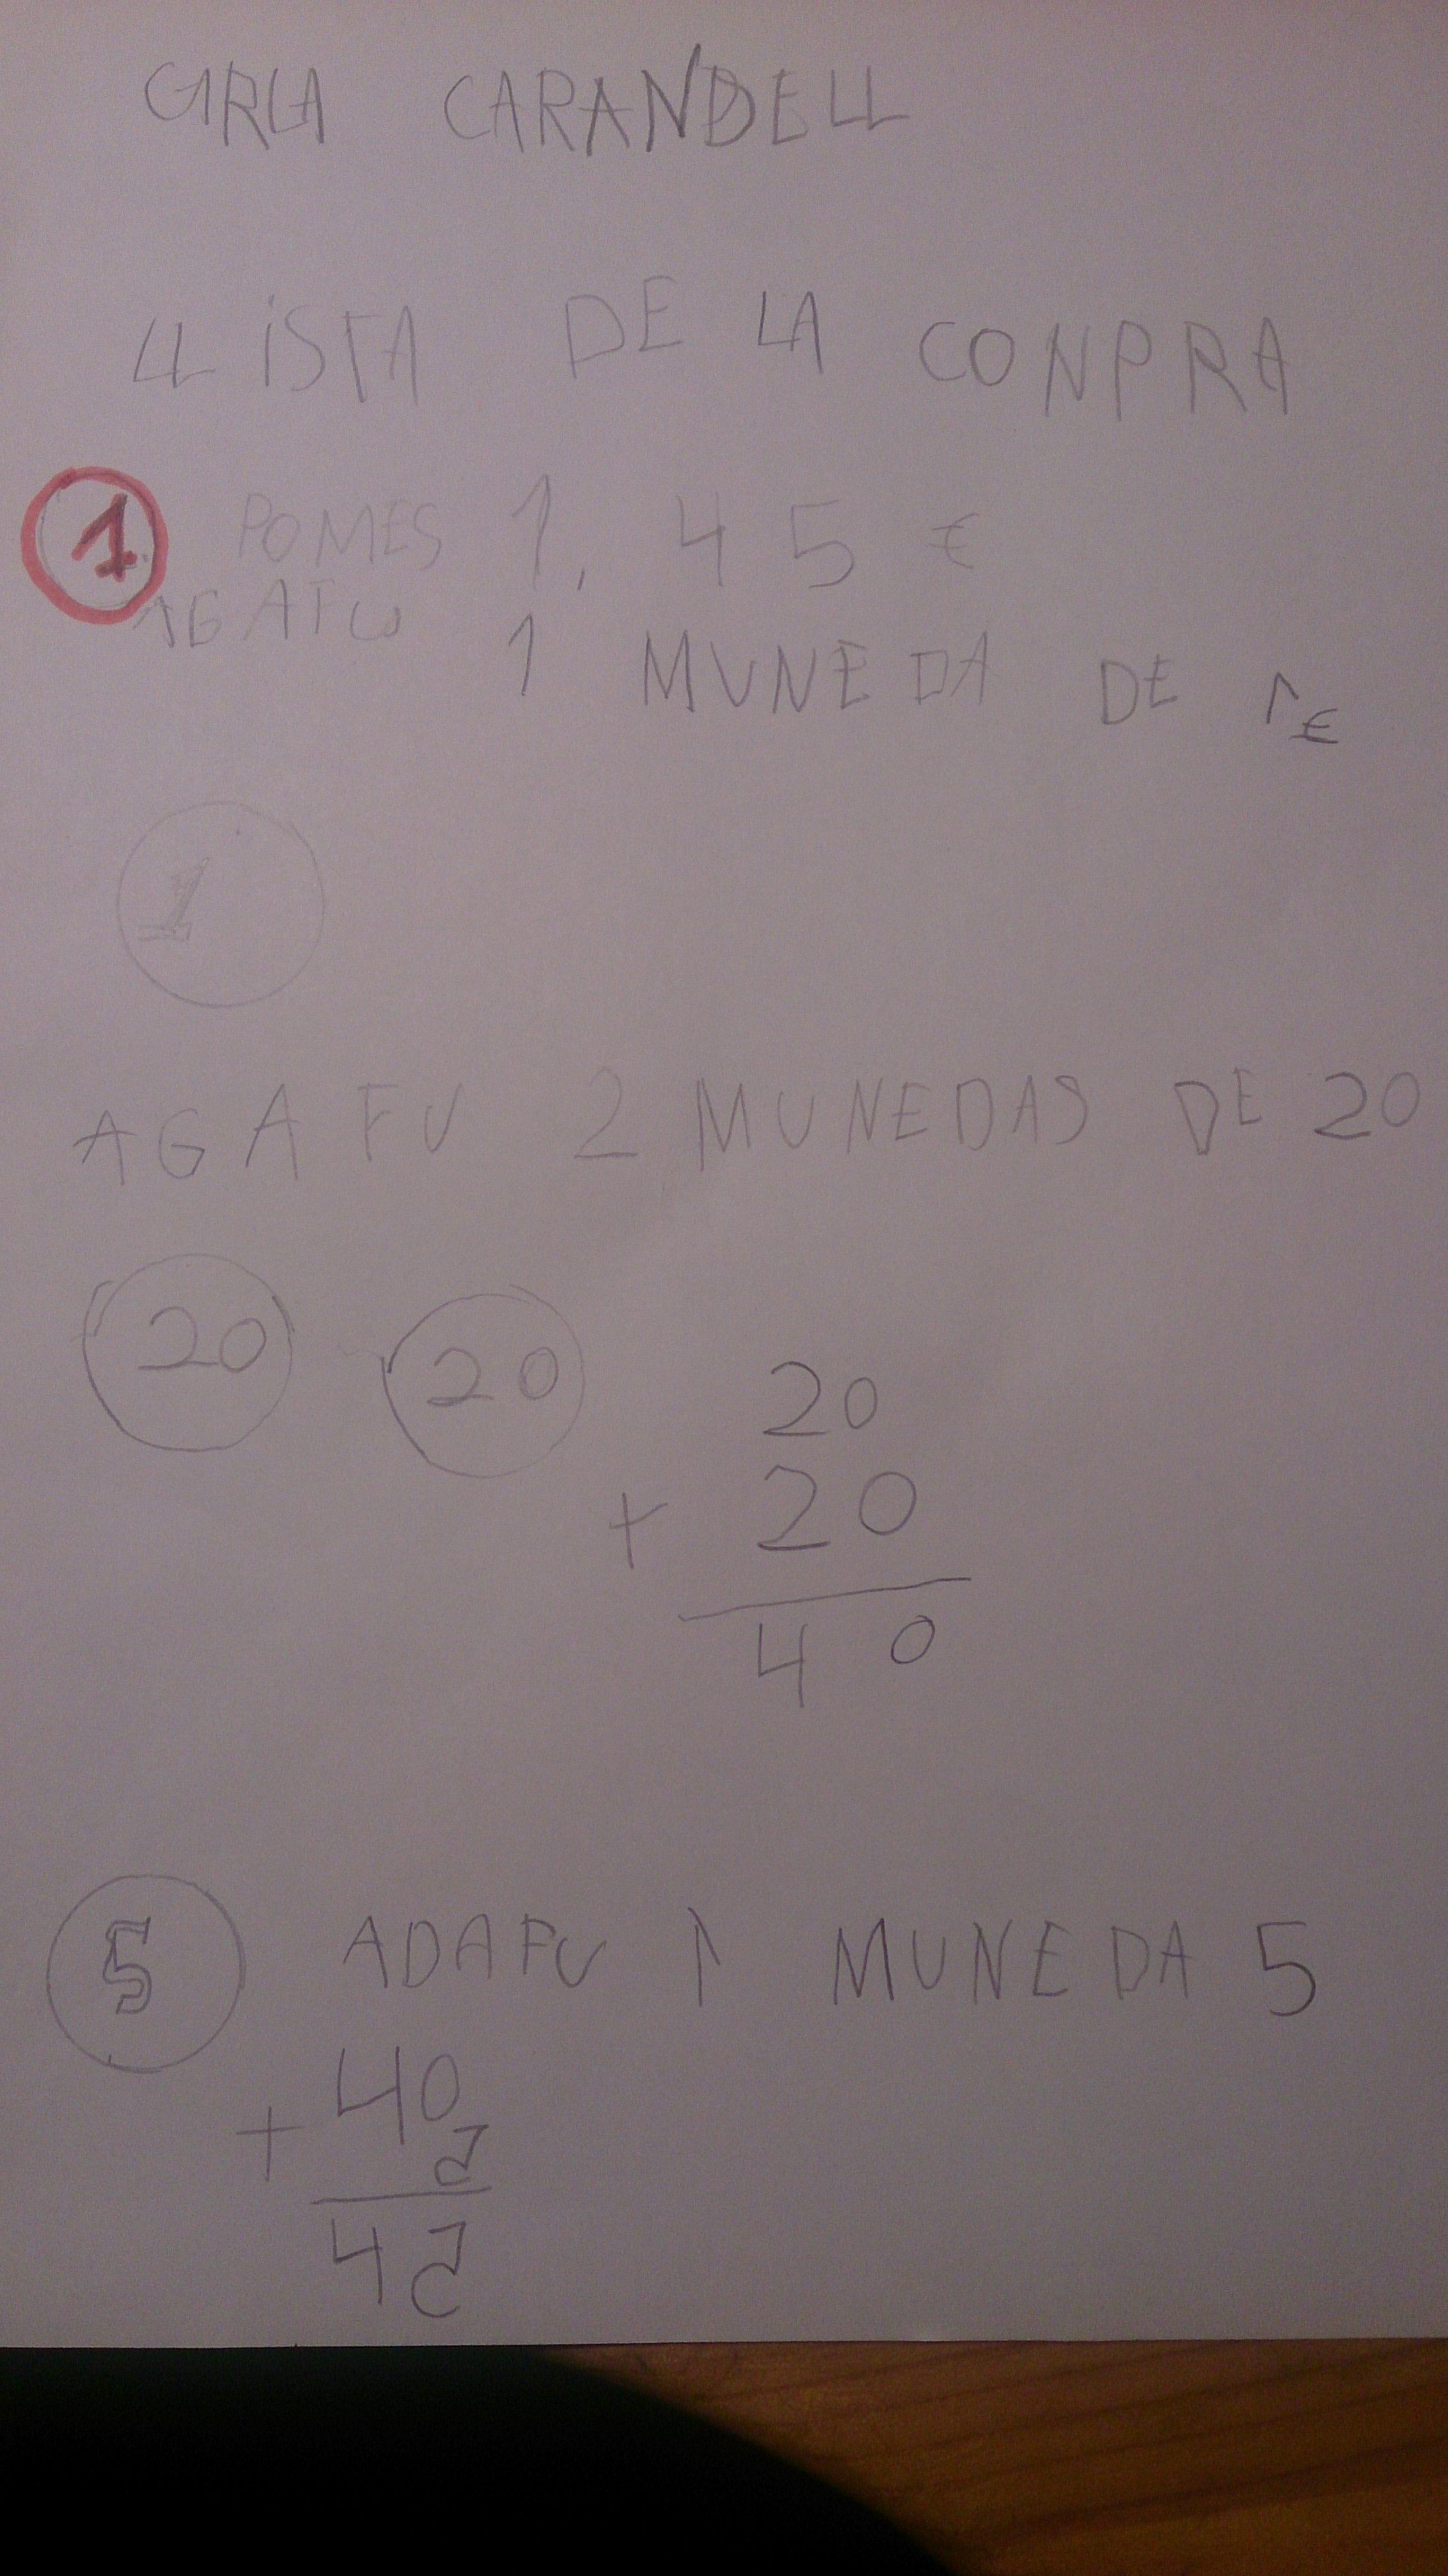 CARLA CARANDELL
LLiSTA DE LA CONPRA
1 POMES 1,45 €
AGAFU 1 MUNEDA DE 1€
1
AGAFU 2 MUNEDAS DE 20
20 20
20
+ 20
40
5 ADAFU 1 MUNEDA 5
+ 40
5
45